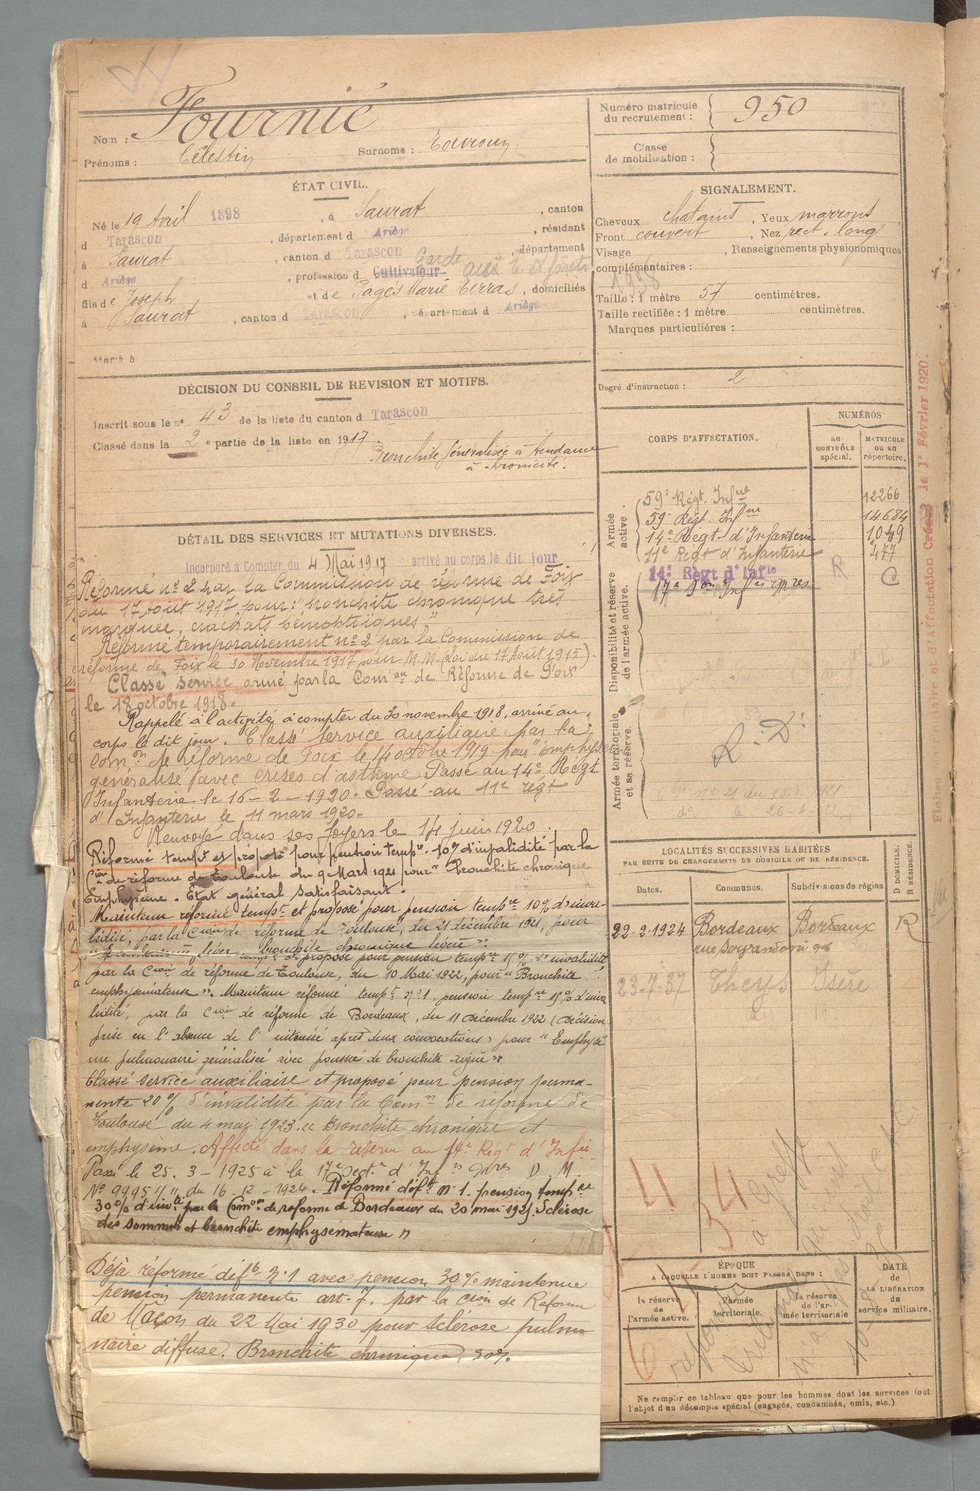 Nom : Fournié
Prénoms : Célestin Surnoms :
ÉTAT CIVIL.
Né le 19 Avril 1898, à Saurat, canton
d Tarascon, département d Ariège, résidant
à Saurat, canton d Tarascon, département
d Ariège, profession d Cultivateur Garde
fils de Joseph et de Pagès Marie, domiciliés
à Saurat, canton d Tarascon, département d Ariège
Marié à
DÉCISION DU CONSEIL DE REVISION ET MOTIFS.
Inscrit sous le n° 43 de la liste du canton d Tarascon
Classé dans la 2e partie de la liste en 1917
Bronchite généralisée à tendance
à chronicité.
DÉTAIL DES SERVICES ET MUTATIONS DIVERSES.
Incorporé à Compter du 4 Mai 1917 arrivé au corps le dit jour
Réformé n° 2 par la Commission de réforme de Foix
du 17 août 1917 pour "bronchite chronique très
marquée, crachats hémoptoïques"
Réformé temporairement n° 2 par la Commission de
réforme de Foix le 30 Novembre 1917 pour M.M. (Loi du 17 Août 1915).
Classé service armé par la Comon de Réforme de Foix
le 18 octobre 1918.
Rappelé à l'activité à compter du 30 novembre 1918, arrivé au
corps le dit jour. Classé Service auxiliaire par la
Comon de réforme de Foix le 14 octobre 1919 pour "emphysème
généralisé avec crises d'asthme Passé au 14e Régt
Infanterie le 16-2-1920. Passé au 11e régt
d'Infanterie le 11 mars 1920.
Renvoyé dans ses foyers le 14 juin 1920.
Réformé tempt et proposé pour pension tempre 10% d'invalidité par la
Cion de réforme de Toulouse du 9 Mars 1921 pour "Bronchite chronique
Emphysème. Etat général satisfaisant.
Maintenu réformé tempt et proposé pour pension tempre 10% d'inva-
lidité, par la Cion de réforme de Toulouse, du 21 décembre 1921, pour
bronchite chronique légère".
proposé pour pension tempre 15% d'invalidité
par la Cion de réforme de Toulouse, du 10 Mai 1922, pour "Bronchite
emphysémateuse". Maintenu réformé tempt n° 1, pension tempre 15% d'inva
lidité, par la Cion de réforme de Bordeaux, du 11 décembre 1922 (décision
prise en l'absence de l'intéressé après deux convocations) pour "Emphysè
me pulmonaire généralisé avec poussée de bronchite aiguë"
Classé service auxiliaire et proposé pour pension perma-
nente 20% d'invalidité par la Comon de réforme de
Toulouse du 4 mai 1923 "Bronchite chronique et
emphysème. Affecté dans la réserve au 14e Régt d'Infie
Passé le 25-3-1925 à la 17e Secton d'Infres D.M.
N° 9995 du 16-12-1924. Réformé déft n° 1. pension tempre
30% d'invté par la Comon de réforme de Bordeaux du 20 mai Sclérose
des sommets et bronchite emphysémateuse"
Déjà réformé déft n° 1 avec pension 30% maintenue
pension permanente art. 7. par la Cion de Réforme
de Mâcon du 22 Mai 1930 pour Sclérose pulmo
naire diffuse. Bronchite chronique. 30%.
Numéro matricule du recrutement : 950
Classe de mobilisation :
SIGNALEMENT.
Cheveux chatains, Yeux marrons
Front couvert, Nez rect. long
Visage, Renseignements physionomiques
complémentaires :
1938
Taille : 1 mètre 57 centimètres.
Taille rectifiée : 1 mètre centimètres.
Marques particulières :
Degré d'instruction : 2
CORPS D'AFFECTATION.
NUMÉROS
AU CONTRÔLE spécial.
MATRICULE OU AU répertoire.
Armée active.
59e Régt. Infrie 12266
59e Régt. Infrie 14684
14e Régt d'Infanterie 1049
11e Régt d'Infanterie 477
Disponibilité et réserve de l'armée active.
14e Régt d'Infie R C
17e Son Infres
Armée territoriale et sa réserve.
R.D.
Fichier et d'Affectation Créés le 1er Février 1920.
LOCALITÉS SUCCESSIVES HABITÉES
PAR SUITE DE CHANGEMENTS DE DOMICILE OU DE RÉSIDENCE.
Dates. Communes. Subdivisions de région D DOMICILE. R RÉSIDENCE.
22-2-1924 Bordeaux Bordeaux R
23-7-37 Theys Isère
ÉPOQUE
A LAQUELLE L'HOMME DOIT PASSER DANS :
la réserve de l'armée active.
l'armée territoriale.
la réserve de l'armée territoriale
DATE de la LIBÉRATION du service militaire.
Ne remplir ce tableau que pour les hommes dont les services font
l'objet d'un décompte spécial (engagés, condamnés, omis, etc.)